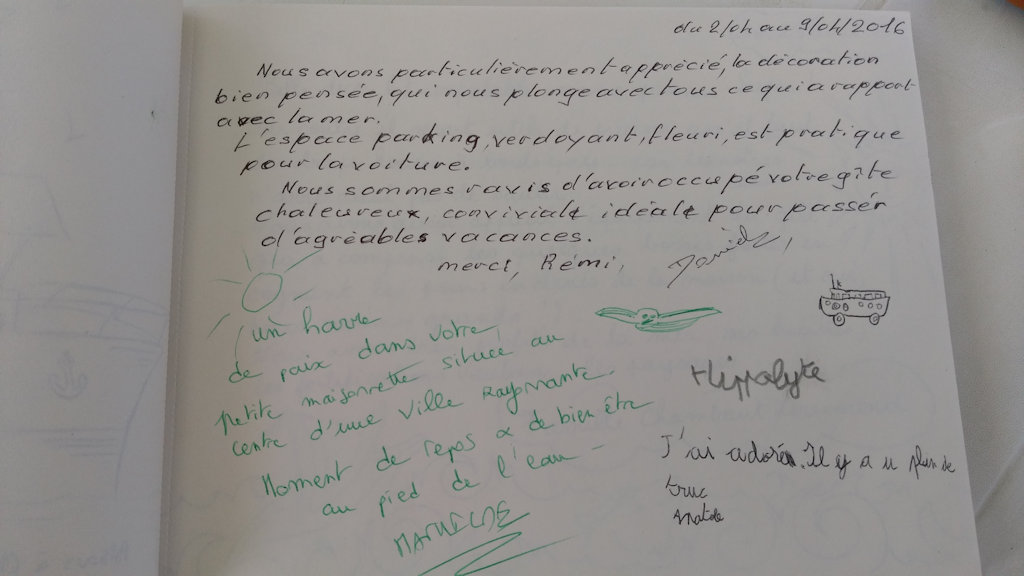 du 2/04 au 9/04/2016
Nous avons particulièrement apprécié, la décoration
bien pensée, qui nous plonge avec tous ce qui a rapport
avec la mer.
L'espace parking, verdoyant, fleuri, est pratique
pour la voiture.
Nous sommes ravis d'avoir occupé votre gîte
chaleureux, convivial idéal pour passer
d'agréables vacances.
merci, Rémi,
un havre
de paix dans votre
petite maisonnette située au
centre d'une ville Rayonnante.
Moment de repos & de bien être
au pied de l'eau
MATHILDE
Hippolyte
J'ai adoré. Il y a u plein de
truc
Anatole